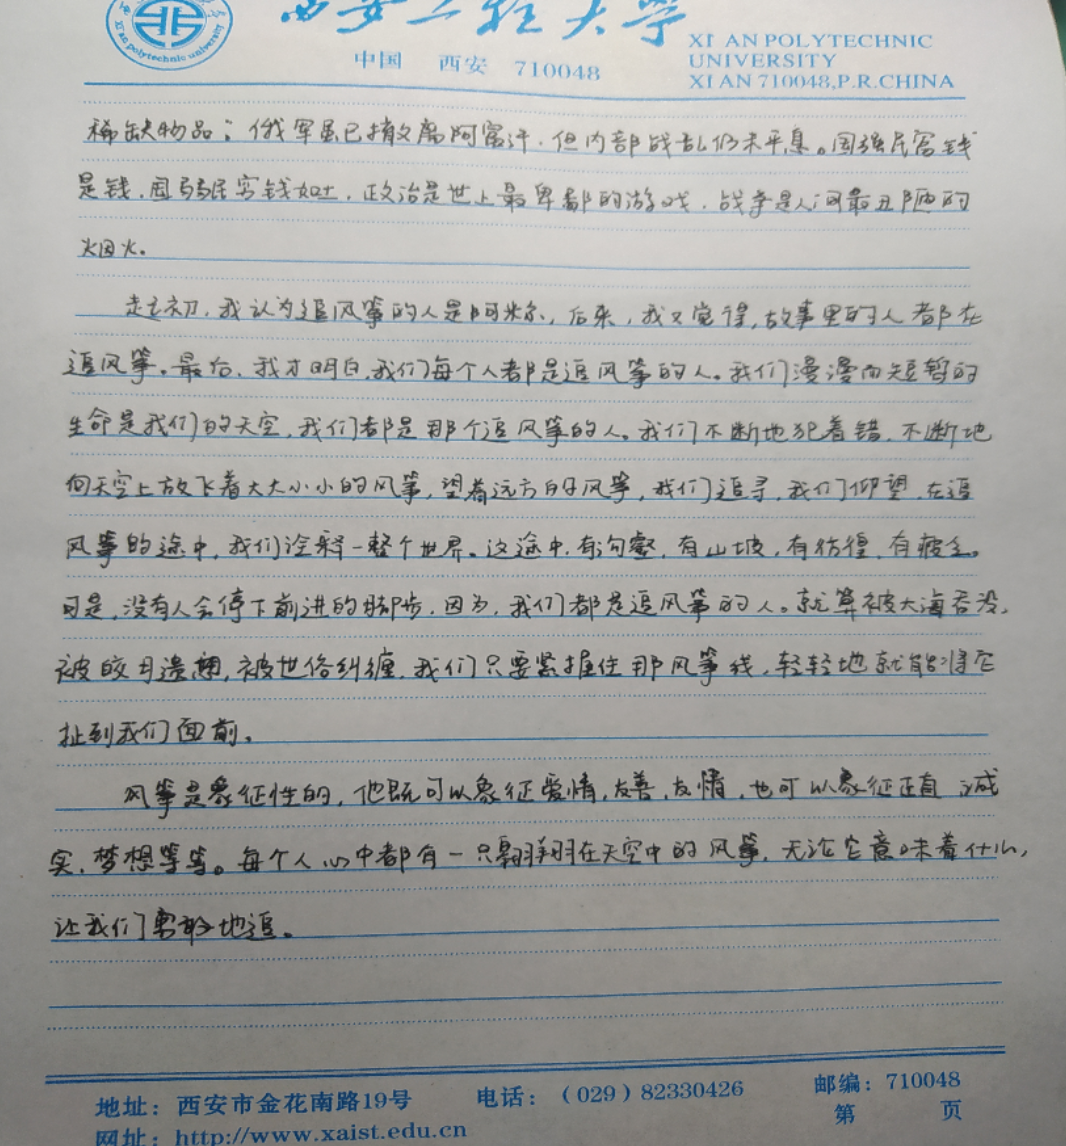 西安工程大学
XI AN POLYTECHNIC
UNIVERSITY
中国 西安 710048
XI AN 710048,P.R.CHINA
Xi'an polytechnic university
稀缺物品；俄军虽已撤离阿富汗，但内部战乱仍未平息。国强民富钱
是钱，国弱民穷钱如土，政治是世上最卑鄙的游戏，战争是人间最丑陋的
烟火。
起初，我认为追风筝的人是阿米尔，后来，我又觉得，故事里的人都在
追风筝。最后，我才明白，我们每个人都是追风筝的人。我们漫漫而短暂的
生命是我们的天空，我们都是那个追风筝的人。我们不断地犯着错，不断地
向天空上放飞着大大小小的风筝，望着远方的风筝，我们追寻，我们仰望，在追
风筝的途中，我们诠释一整个世界。这途中，有沟壑，有山坡，有彷徨，有疲乏。
可是，没有人会停下前进的脚步，因为，我们都是追风筝的人。就算被大海吞没，
被皎月遗，被世俗纠缠，我们只要紧握住那风筝线，轻轻地就能将它
扯到我们面前。
风筝是象征性的，他既可以象征爱情，友善，友情，也可以象征正直，诚
实，梦想等等。每个人心中都有一只翱翔在天空中的风筝，无论它意味着什么，
让我们勇敢地追。
地址：西安市金花南路19号
电话：（029）82330426
邮编：710048
网址：http://www.xaist.edu.cn
第 页